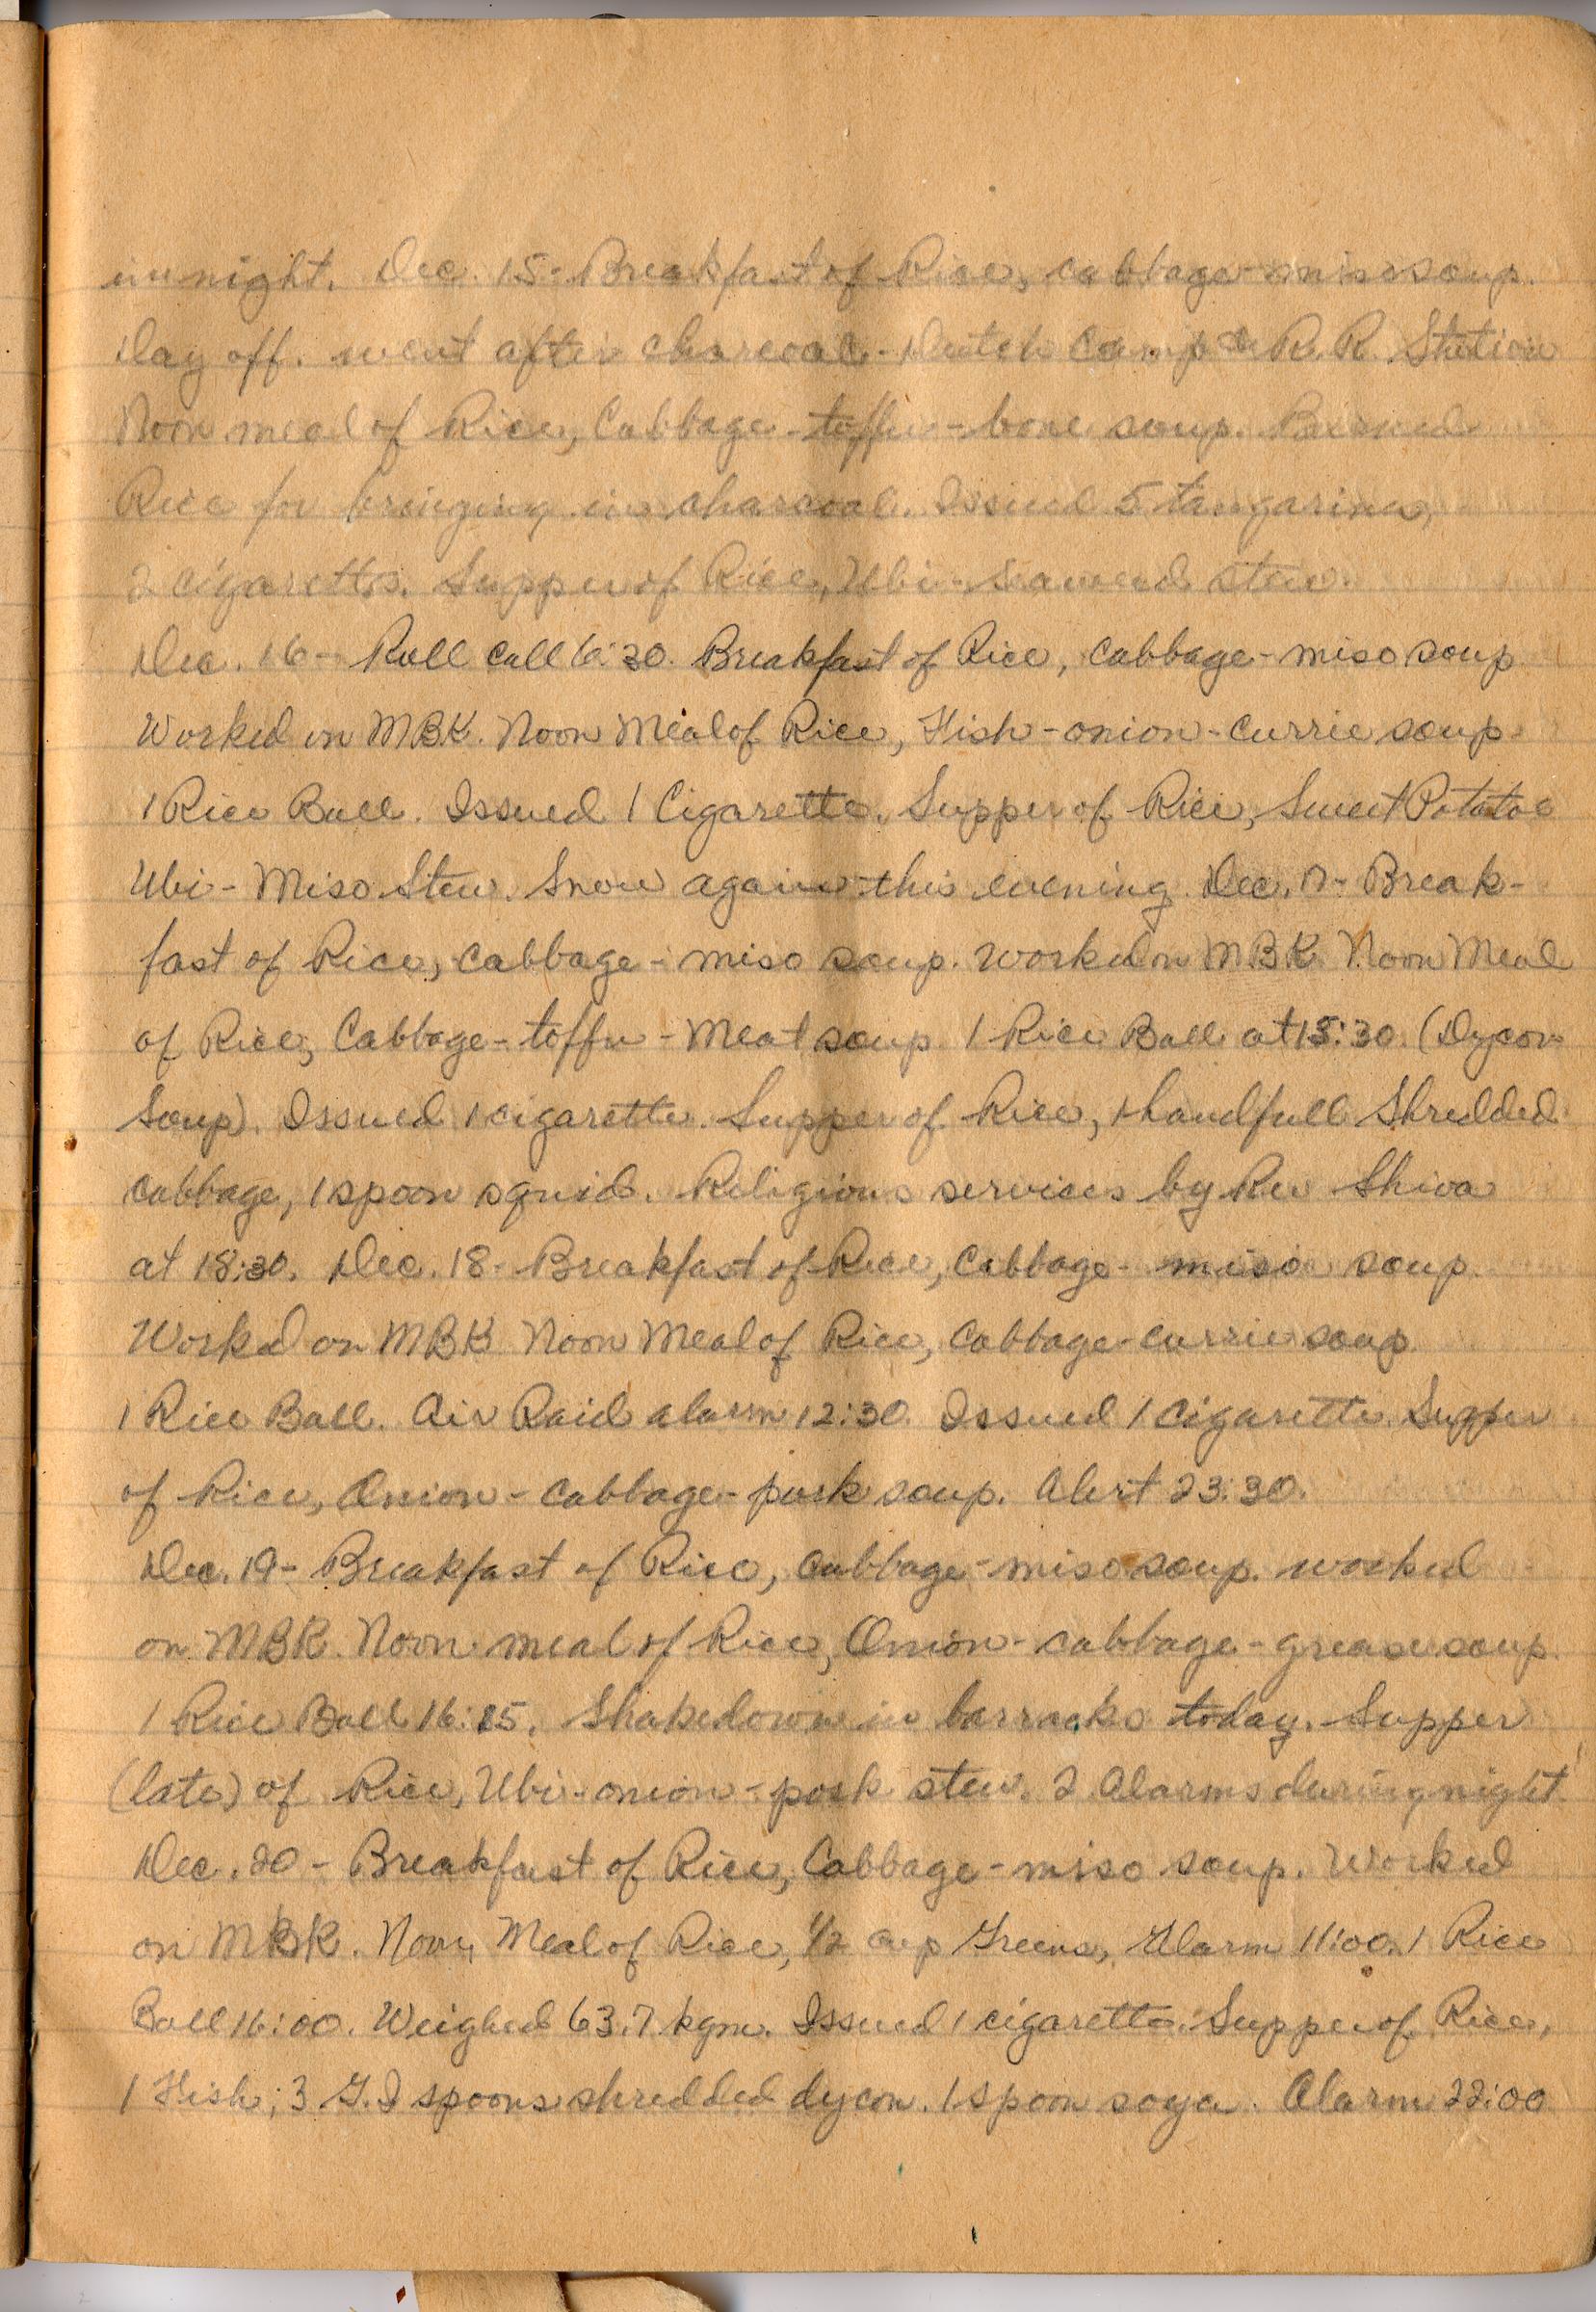 in night. Dec. 15- Breakfast of Rice, cabbage-miso soup.
Day off. went after charcoal- Dutch Camp & R.R. Station
Noon meal of Rice, Cabbage-toffu-bone soup. Burned
Rice for bringing in charcoal. Issued 5 tangarines,
2 cigarettes. Supper of Rice, Ubi-seaweed stew.
Dec. 16- Roll call 6:30. Breakfast of Rice, cabbage-miso soup
Worked on MBK. Noon Meal of Rice, Fish-onion-currie soup.
1 Rice Ball. Issued 1 Cigarette. Supper of Rice, Sweet Potatoe
Ubi-Miso Stew. Snow again this evening. Dec. 17- Break-
fast of Rice, cabbage-miso soup. Worked on MBK Noon Meal
of Rice, Cabbage-toffu-Meat soup. 1 Rice Ball at 15:30. (Dycon
Soup). Issued 1 cigarette. Supper of Rice, 1 handfull Shredded
cabbage, 1 spoon squid. Religious services by Rev Shiva
at 18:30. Dec. 18- Breakfast of Rice, Cabbage-miso soup.
Worked on MBK Noon Meal of Rice, Cabbage-currie soup
1 Rice Ball. Air Raid alarm 12:30. Issued 1 cigarette. Supper
of Rice, Onion-cabbage-pork soup. Alert 23:30.
Dec. 19- Breakfast of Rice, cabbage-miso soup. worked
on MBK. Noon meal of Rice, Onion-cabbage-grease soup.
1 Rice Ball 16:15. Shakedown in barracks today. Supper
(late) of Rice, Ubi-onion-pork stew. 2 Alarms during night
Dec. 20- Breakfast of Rice, Cabbage-miso soup. Worked
on MBK. Noon Meal of Rice, 1/2 cup Greens, Alarm 11:00. 1 Rice
Ball 16:00. Weighed 63.7 kgm. Issued 1 cigarette. Supper of Rice,
1 Fish; 3 G.I spoons shredded dycon. 1 spoon soya. Alarm 22:00